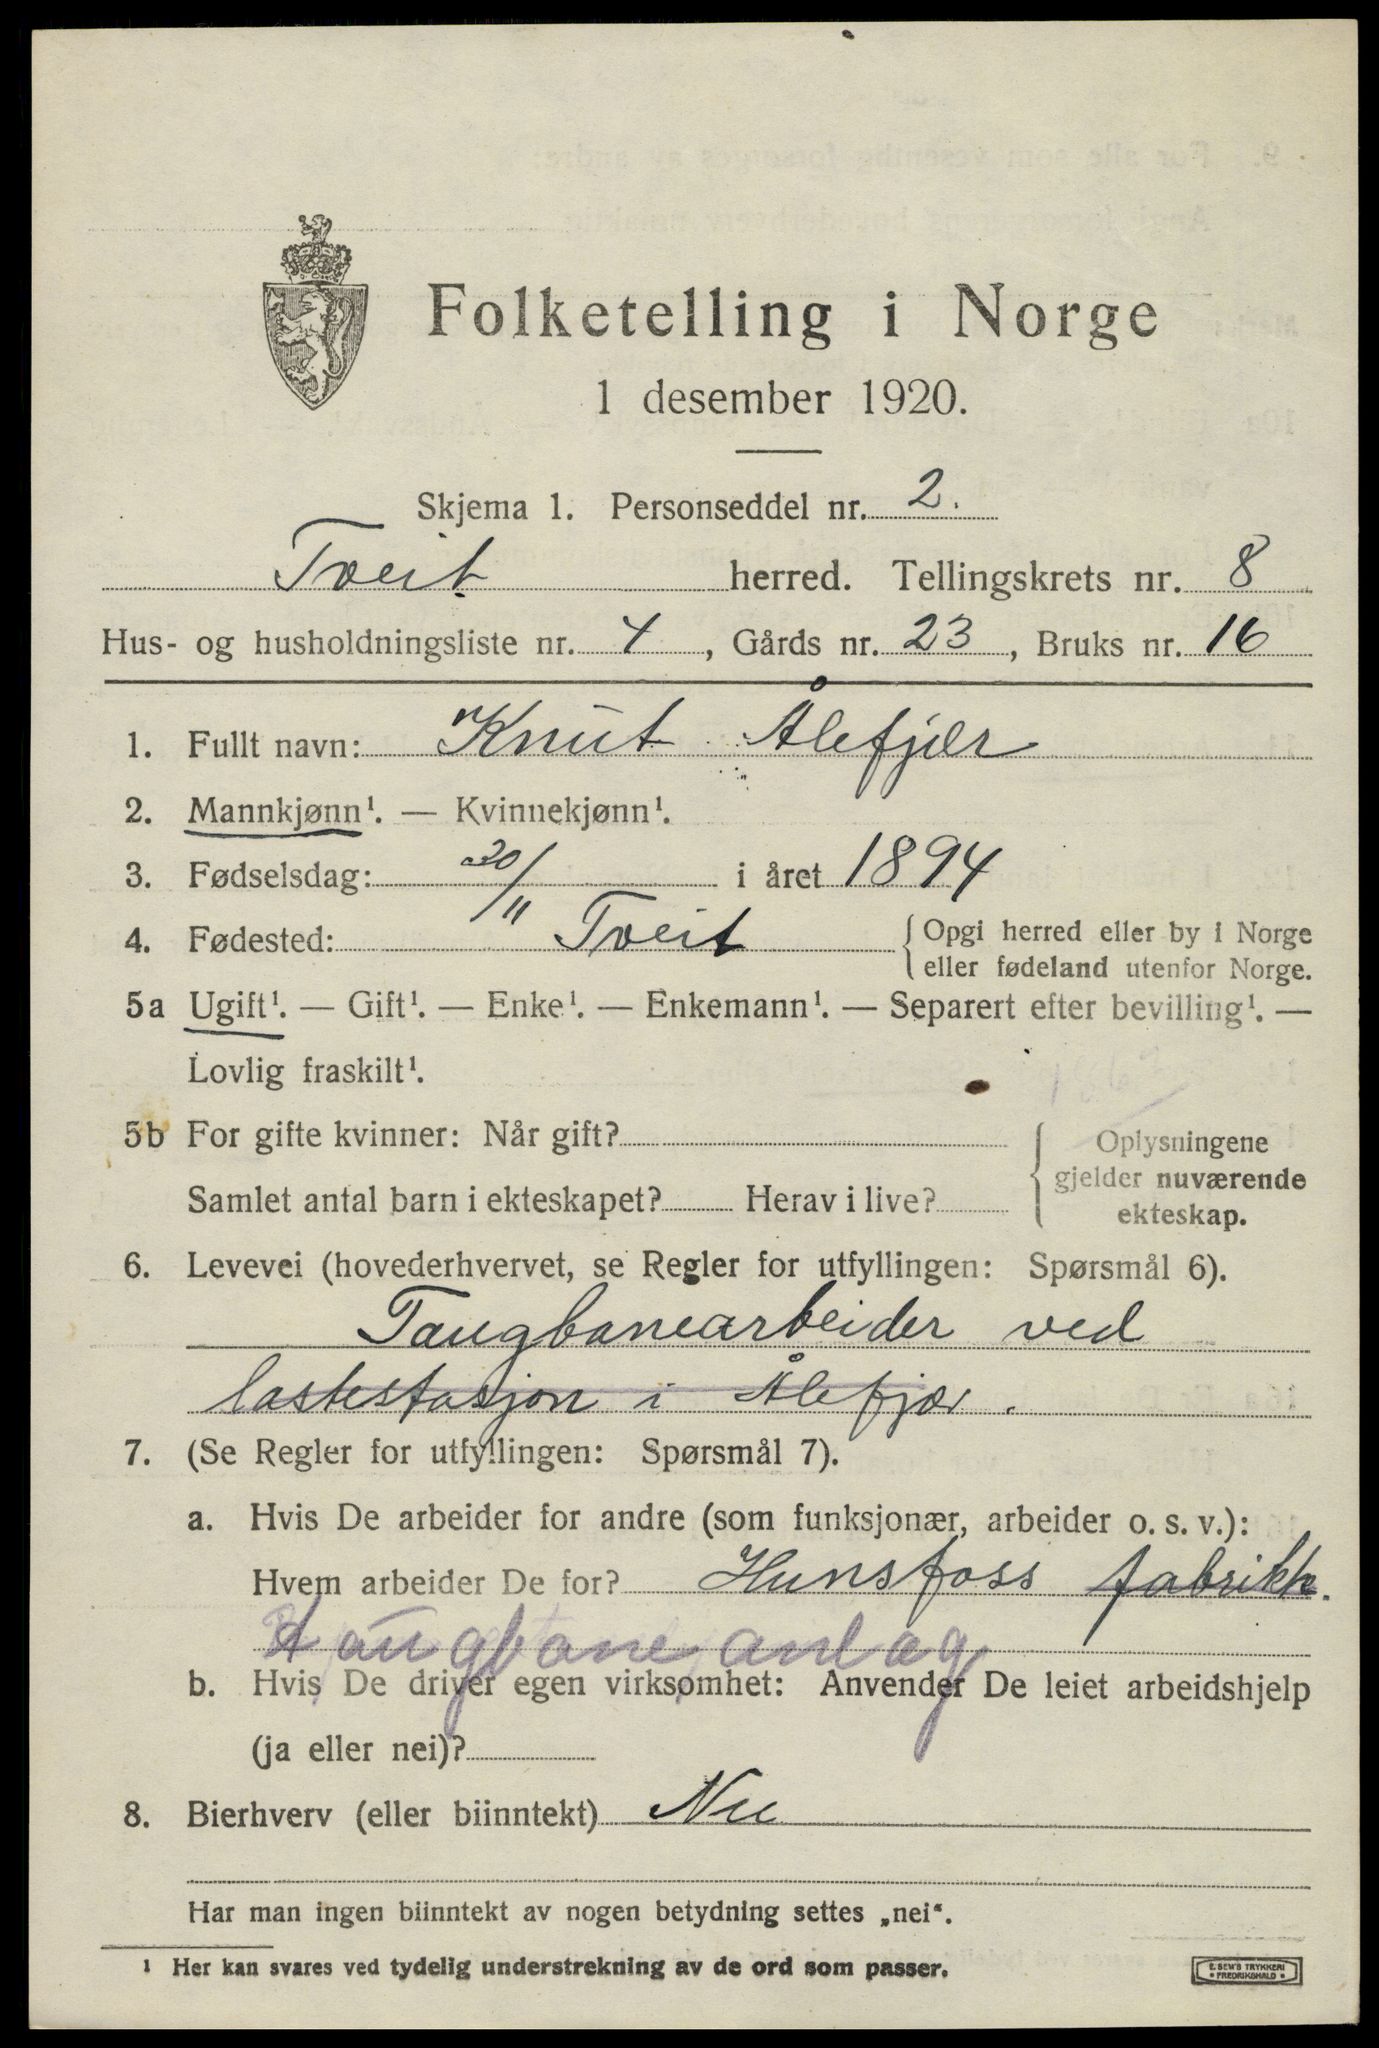 Folketelling i Norge
1 desember 1920.
Skjema 1. Personseddel nr. 2.
Tveit herred. Tellingskrets nr. 8
Hus- og husholdningsliste nr. 4, Gårds nr. 23, Bruks nr. 16
1. Fullt navn: Knut Ålefjær
2. Mannkjønn¹. — Kvinnekjønn¹.
3. Fødselsdag: 20/11 i året 1894
4. Fødested: Tveit { Opgi herred eller by i Norge
eller fødeland utenfor Norge.
5a Ugift¹. — Gift¹. — Enke¹. — Enkemann¹. — Separert efter bevilling¹. —
Lovlig fraskilt¹.
5b For gifte kvinner: Når gift?
Samlet antal barn i ekteskapet? Herav i live?
{ Oplysningene
gjelder nuværende
ekteskap.
6. Levevei (hovederhvervet, se Regler for utfyllingen: Spørsmål 6).
Taugbanearbeider ved
lastestasjon i Ålefjær.
7. (Se Regler for utfyllingen: Spørsmål 7).
a. Hvis De arbeider for andre (som funksjonær, arbeider o. s. v.):
Hvem arbeider De for? Hunsfoss fabrikk.
taugbaneanlæg
b. Hvis De driver egen virksomhet: Anvender De leiet arbeidshjelp
(ja eller nei)?
8. Bierhverv (eller biinntekt) Nei
Har man ingen biinntekt av nogen betydning settes „nei“.
¹ Her kan svares ved tydelig understrekning av de ord som passer.
E. SEM'S TRYKKERI
• FREDRIKSHALD •